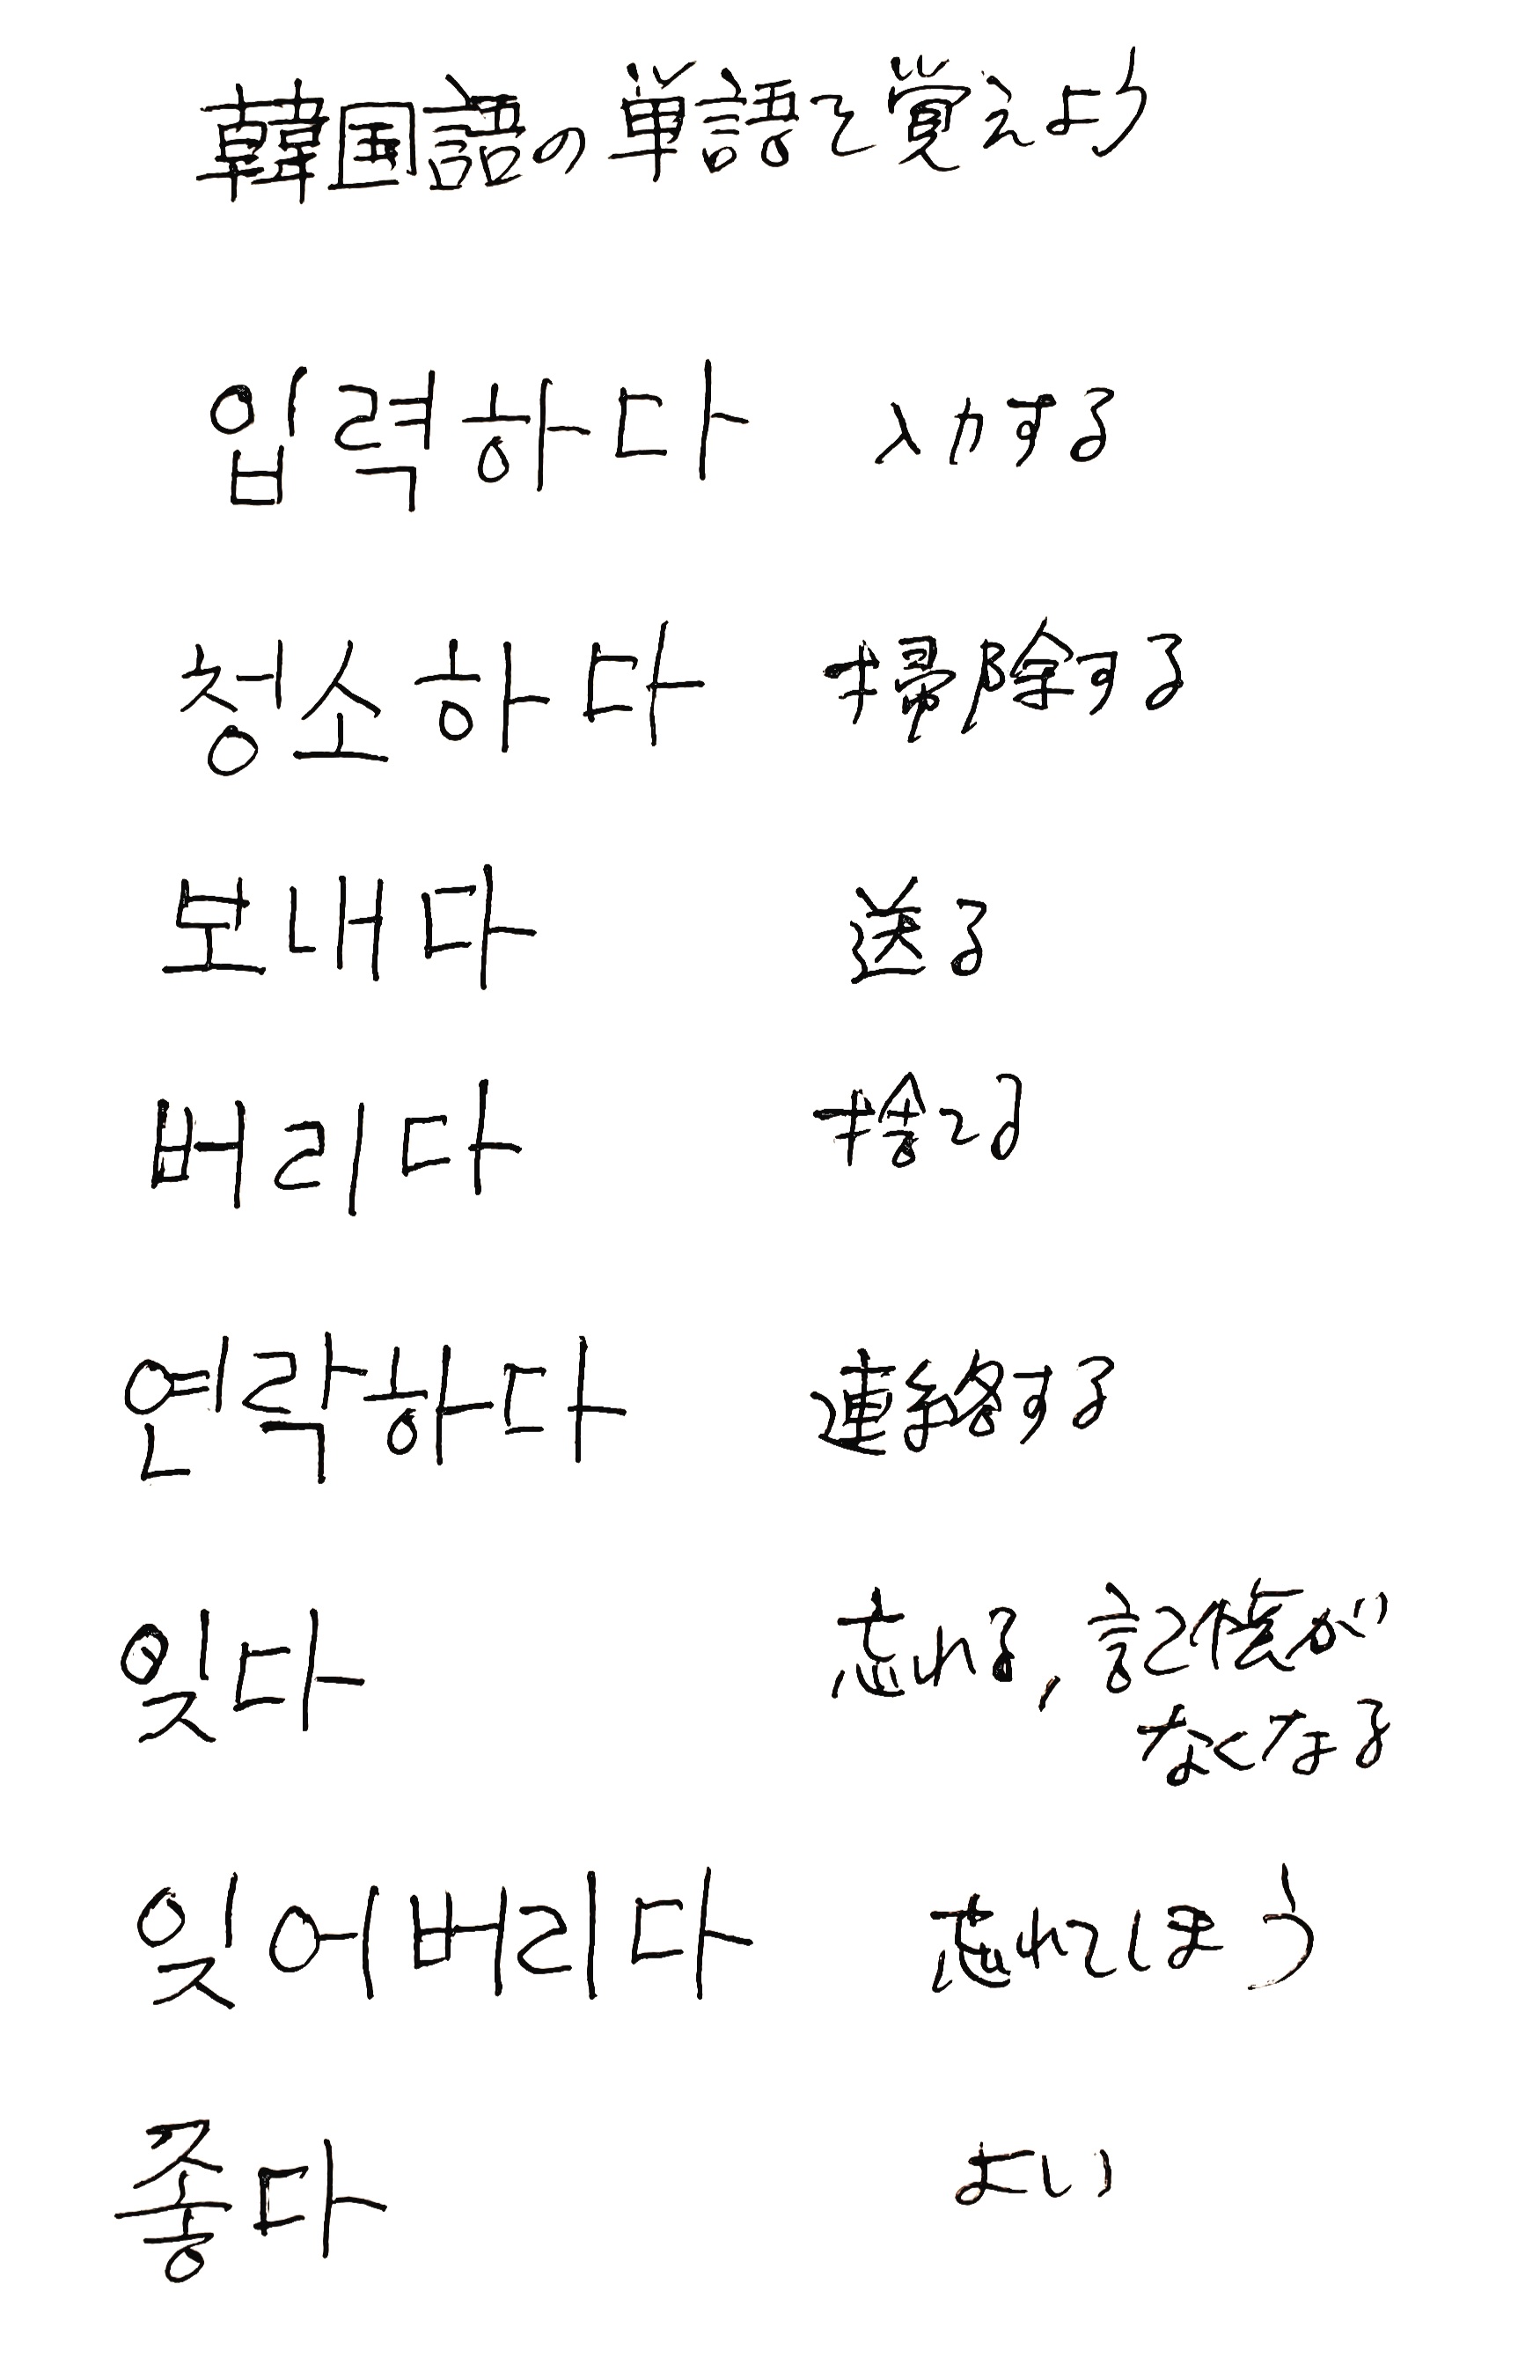 韓国語の単語を覚えよう
입력하다 入力する
청소하다 掃除する
보내다 送る
버리다 捨てる
연락하다 連絡する
잊다 忘れる, 記憶が
なくなる
잊어버리다 忘れてしまう
좋다 よい